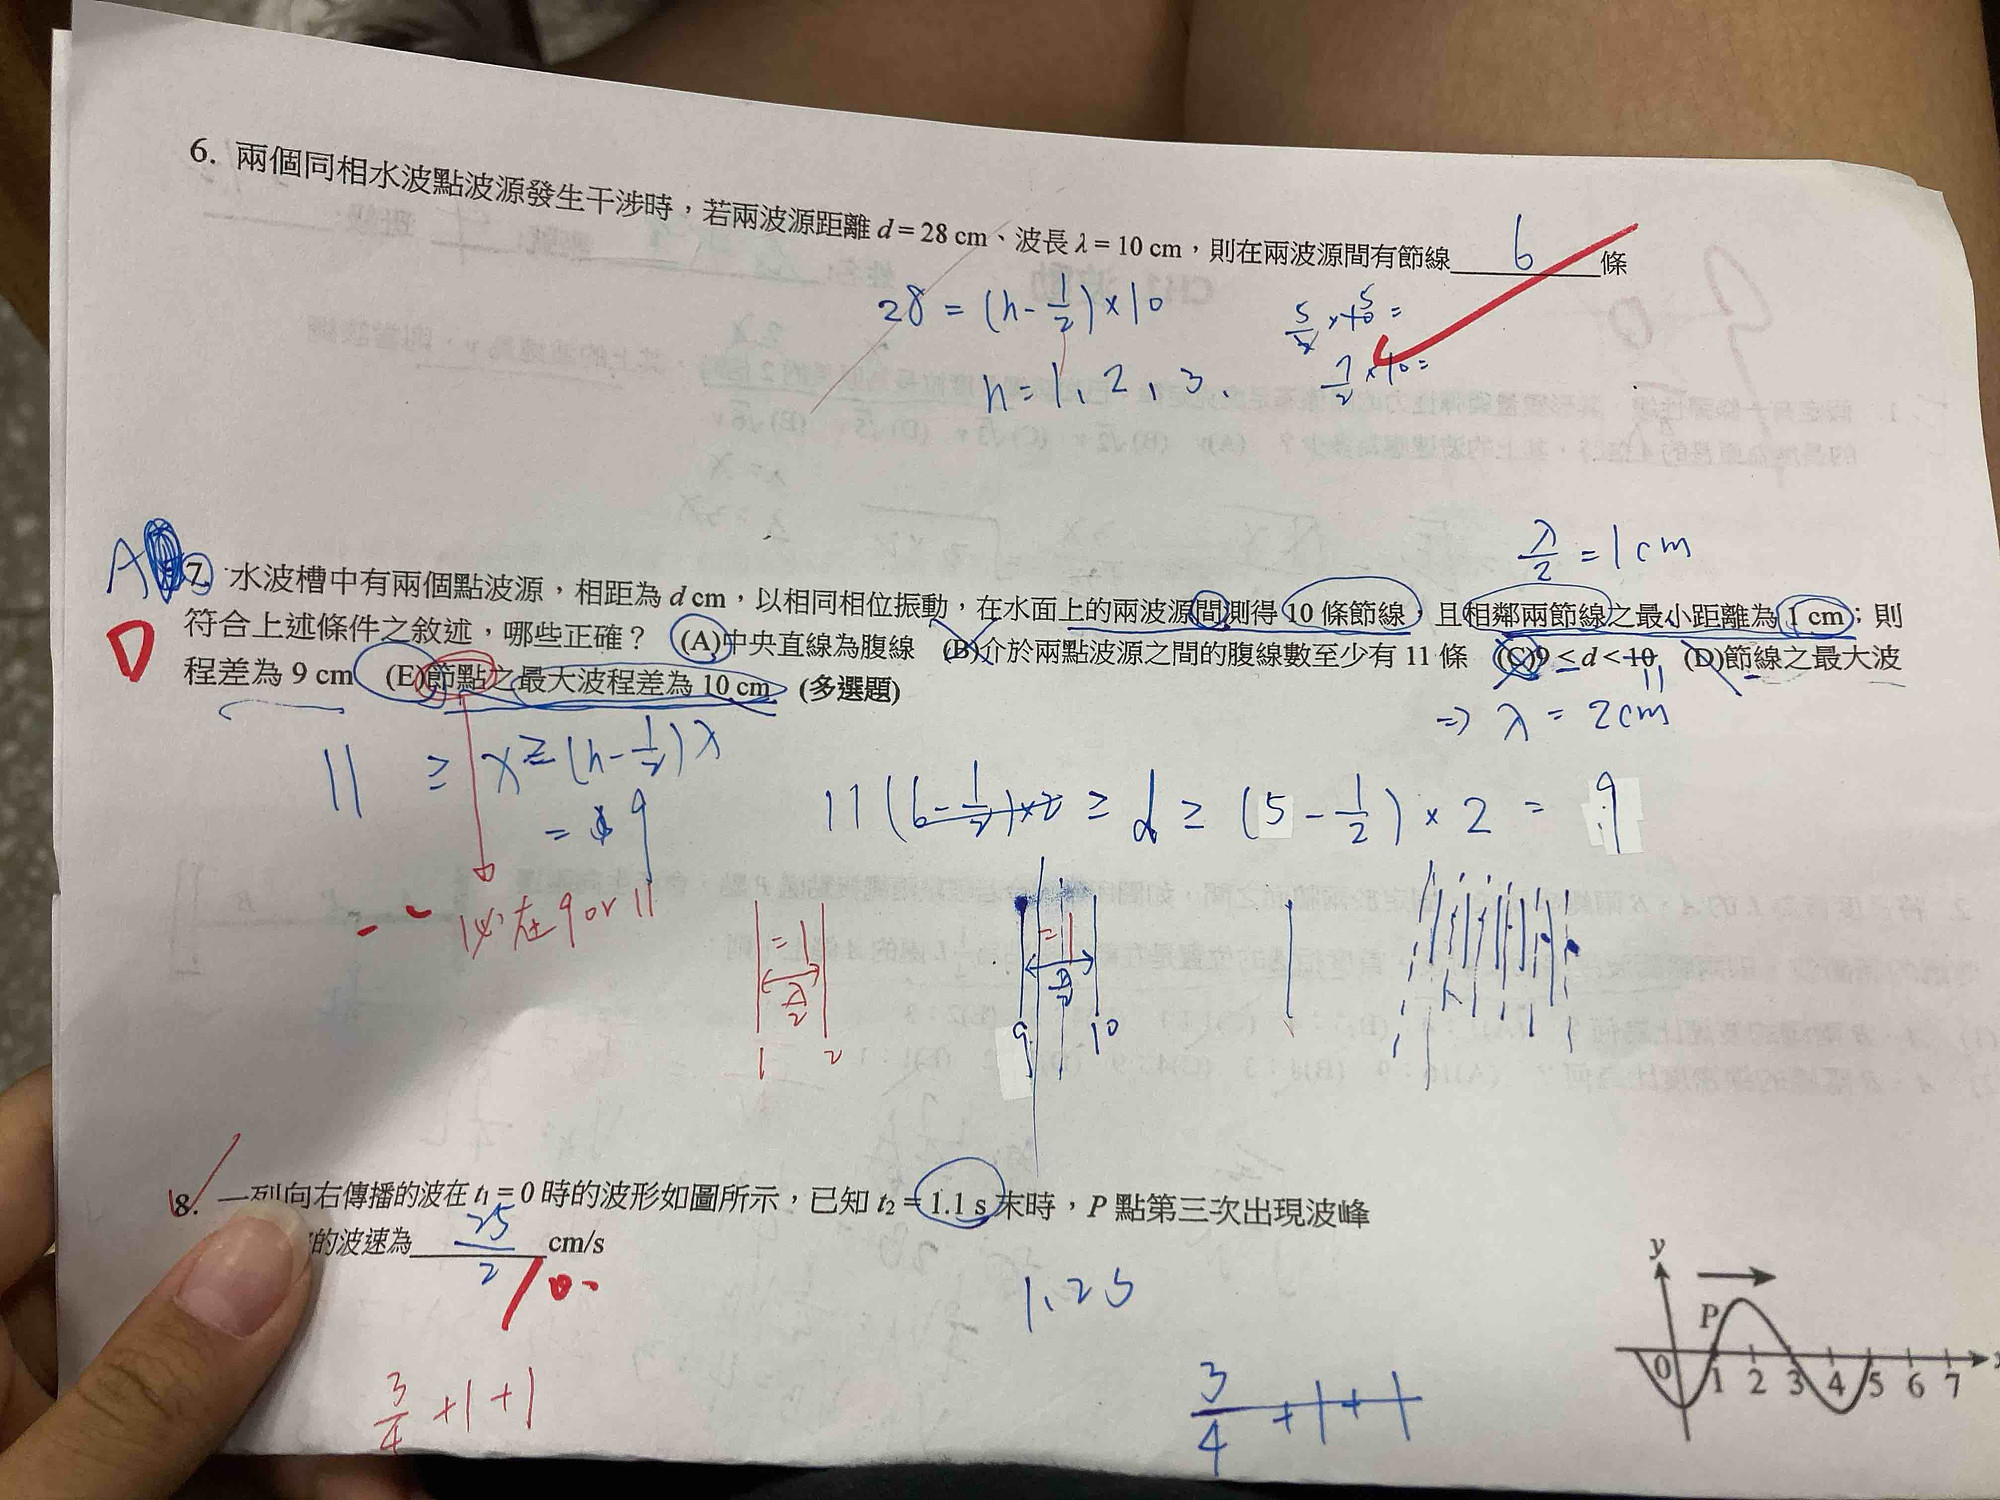 6. 兩個同相水波點波源發生干涉時，若兩波源距離 d = 28 cm、波長 λ = 10 cm，則在兩波源間有節線 6 條
28 = (n - 1/2) × 10
n = 1, 2, 3.
5/2 × 10 =
7/2 × 10 =
λ/2 = 1 cm
A
D
7. 水波槽中有兩個點波源，相距為 d cm，以相同相位振動，在水面上的兩波源間測得 10 條節線，且相鄰兩節線之最小距離為 1 cm；則
符合上述條件之敘述，哪些正確？ (A)中央直線為腹線 (B)介於兩點波源之間的腹線數至少有 11 條 (C)9 ≤ d < 10 (D)節線之最大波
程差為 9 cm (E)節點之最大波程差為 10 cm (多選題)
11
⇒ λ = 2 cm
11 ≥ x ≥ (n - 1/2) λ
= 9
11 (6 - 1/2) × 2 ≥ d ≥ (5 - 1/2) × 2 = 9
必在 9 or 11
= 1
λ/2
1 2
= 1
λ/2
9 10
8. 一列向右傳播的波在 t₁ = 0 時的波形如圖所示，已知 t₂ = 1.1 s 末時，P 點第三次出現波峰
的波速為 25/2 cm/s
1.25
3/4 + 1 + 1
3/4 + 1 + 1
y
P
0 1 2 3 4 5 6 7